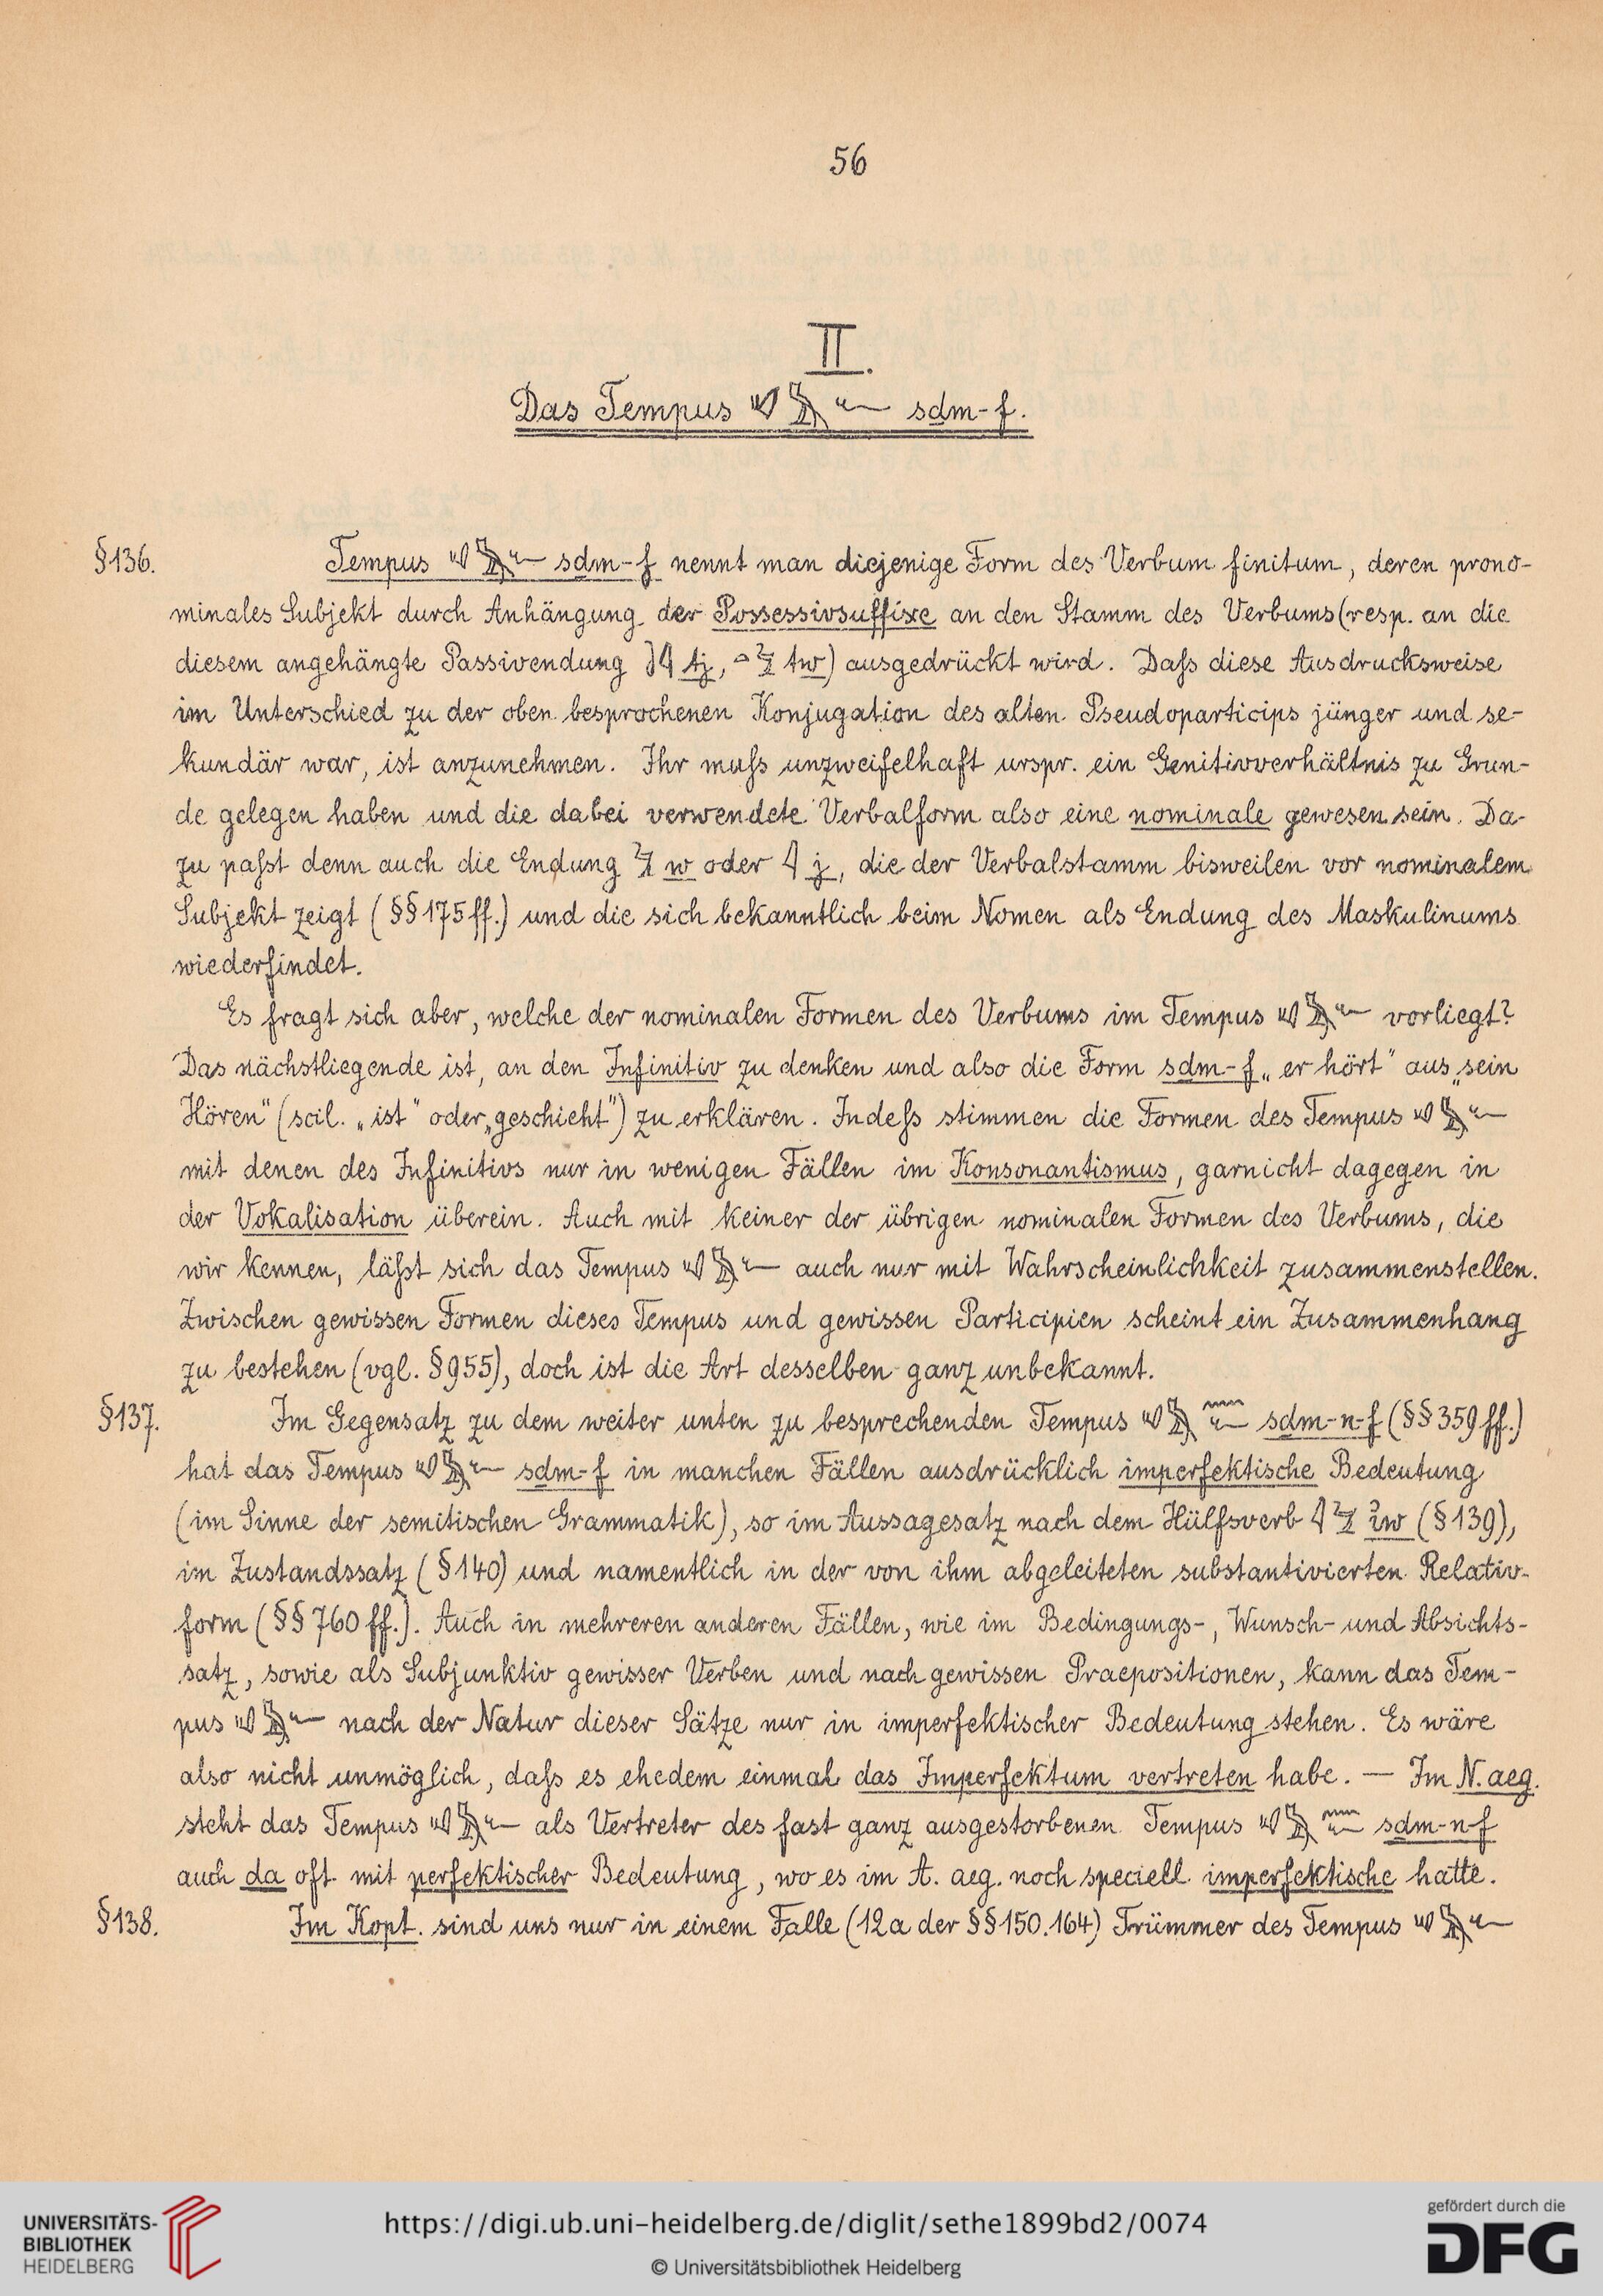 56
II.
Das Tempus 𓄔𓅓𓆑 sḏm-f.
§136. Tempus 𓄔𓅓𓆑 sḏm-f nennt man diejenige Form des Verbum finitum, deren prono-
minales Subjekt durch Anhängung der Possessivsuffixe an den Stamm des Verbums (resp. an die
diesem angehängte Passivendung 𓍿𓇋 tj, 𓏏𓅱 tw) ausgedrückt wird. Daſs diese Ausdrucksweise
im Unterschied zu der oben besprochenen Konjugation des alten Pseudoparticips jünger und se-
kundär war, ist anzunehmen. Ihr muſs unzweifelhaft urspr. ein Genitivverhältnis zu Grun-
de gelegen haben und die dabei verwendete Verbalform also eine nominale gewesen sein. Da-
zu paſst denn auch die Endung 𓅱 w oder 𓇋 j, die der Verbalstamm bisweilen vor nominalem
Subjekt zeigt (§§175ff.) und die sich bekanntlich beim Nomen als Endung des Maskulinums
wiederfindet.
Es fragt sich aber, welche der nominalen Formen des Verbums im Tempus 𓄔𓅓𓆑 vorliegt?
Das nächstliegende ist, an den Infinitiv zu denken und also die Form sḏm-f „er hört“ aus „sein
Hören“ (scil. „ist“ oder „geschieht“) zu erklären. Indeſs stimmen die Formen des Tempus 𓄔𓅓𓆑
mit denen des Infinitivs nur in wenigen Fällen im Konsonantismus, garnicht dagegen in
der Vokalisation überein. Auch mit keiner der übrigen nominalen Formen des Verbums, die
wir kennen, läſst sich das Tempus 𓄔𓅓𓆑 auch nur mit Wahrscheinlichkeit zusammenstellen.
Zwischen gewissen Formen dieses Tempus und gewissen Participien scheint ein Zusammenhang
zu bestehen (vgl. §955), doch ist die Art desselben ganz unbekannt.
§137. Im Gegensatz zu dem weiter unten zu besprechenden Tempus 𓄔𓅓𓈖𓆑 sḏm-n-f (§§359ff.)
hat das Tempus 𓄔𓅓𓆑 sḏm-f in manchen Fällen ausdrücklich imperfektische Bedeutung
(im Sinne der semitischen Grammatik), so im Aussagesatz nach dem Hülfsverb 𓇋𓅱 ꞽw (§139),
im Zustandssatz (§140) und namentlich in der von ihm abgeleiteten substantivierten Relativ-
form (§§760ff.). Auch in mehreren anderen Fällen, wie im Bedingungs-, Wunsch- und Absichts-
satz, sowie als Subjunktiv gewisser Verben und nach gewissen Praepositionen, kann das Tem-
pus 𓄔𓅓𓆑 nach der Natur dieser Sätze nur in imperfektischer Bedeutung stehen. Es wäre
also nicht unmöglich, daſs es ehedem einmal das Imperfektum vertreten habe. — Im N.aeg.
steht das Tempus 𓄔𓅓𓆑 als Vertreter des fast ganz ausgestorbenen Tempus 𓄔𓅓𓈖𓆑 sḏm-n-f
auch da oft mit perfektischer Bedeutung, wo es im A. aeg. noch speciell imperfektische hatte.
§138. Im Kopt. sind uns nur in einem Falle (12a der §§150.164) Trümmer des Tempus 𓄔𓅓𓆑
UNIVERSITÄTS-
BIBLIOTHEK
HEIDELBERG
https://digi.ub.uni-heidelberg.de/diglit/sethe1899bd2/0074
© Universitätsbibliothek Heidelberg
gefördert durch die
DFG